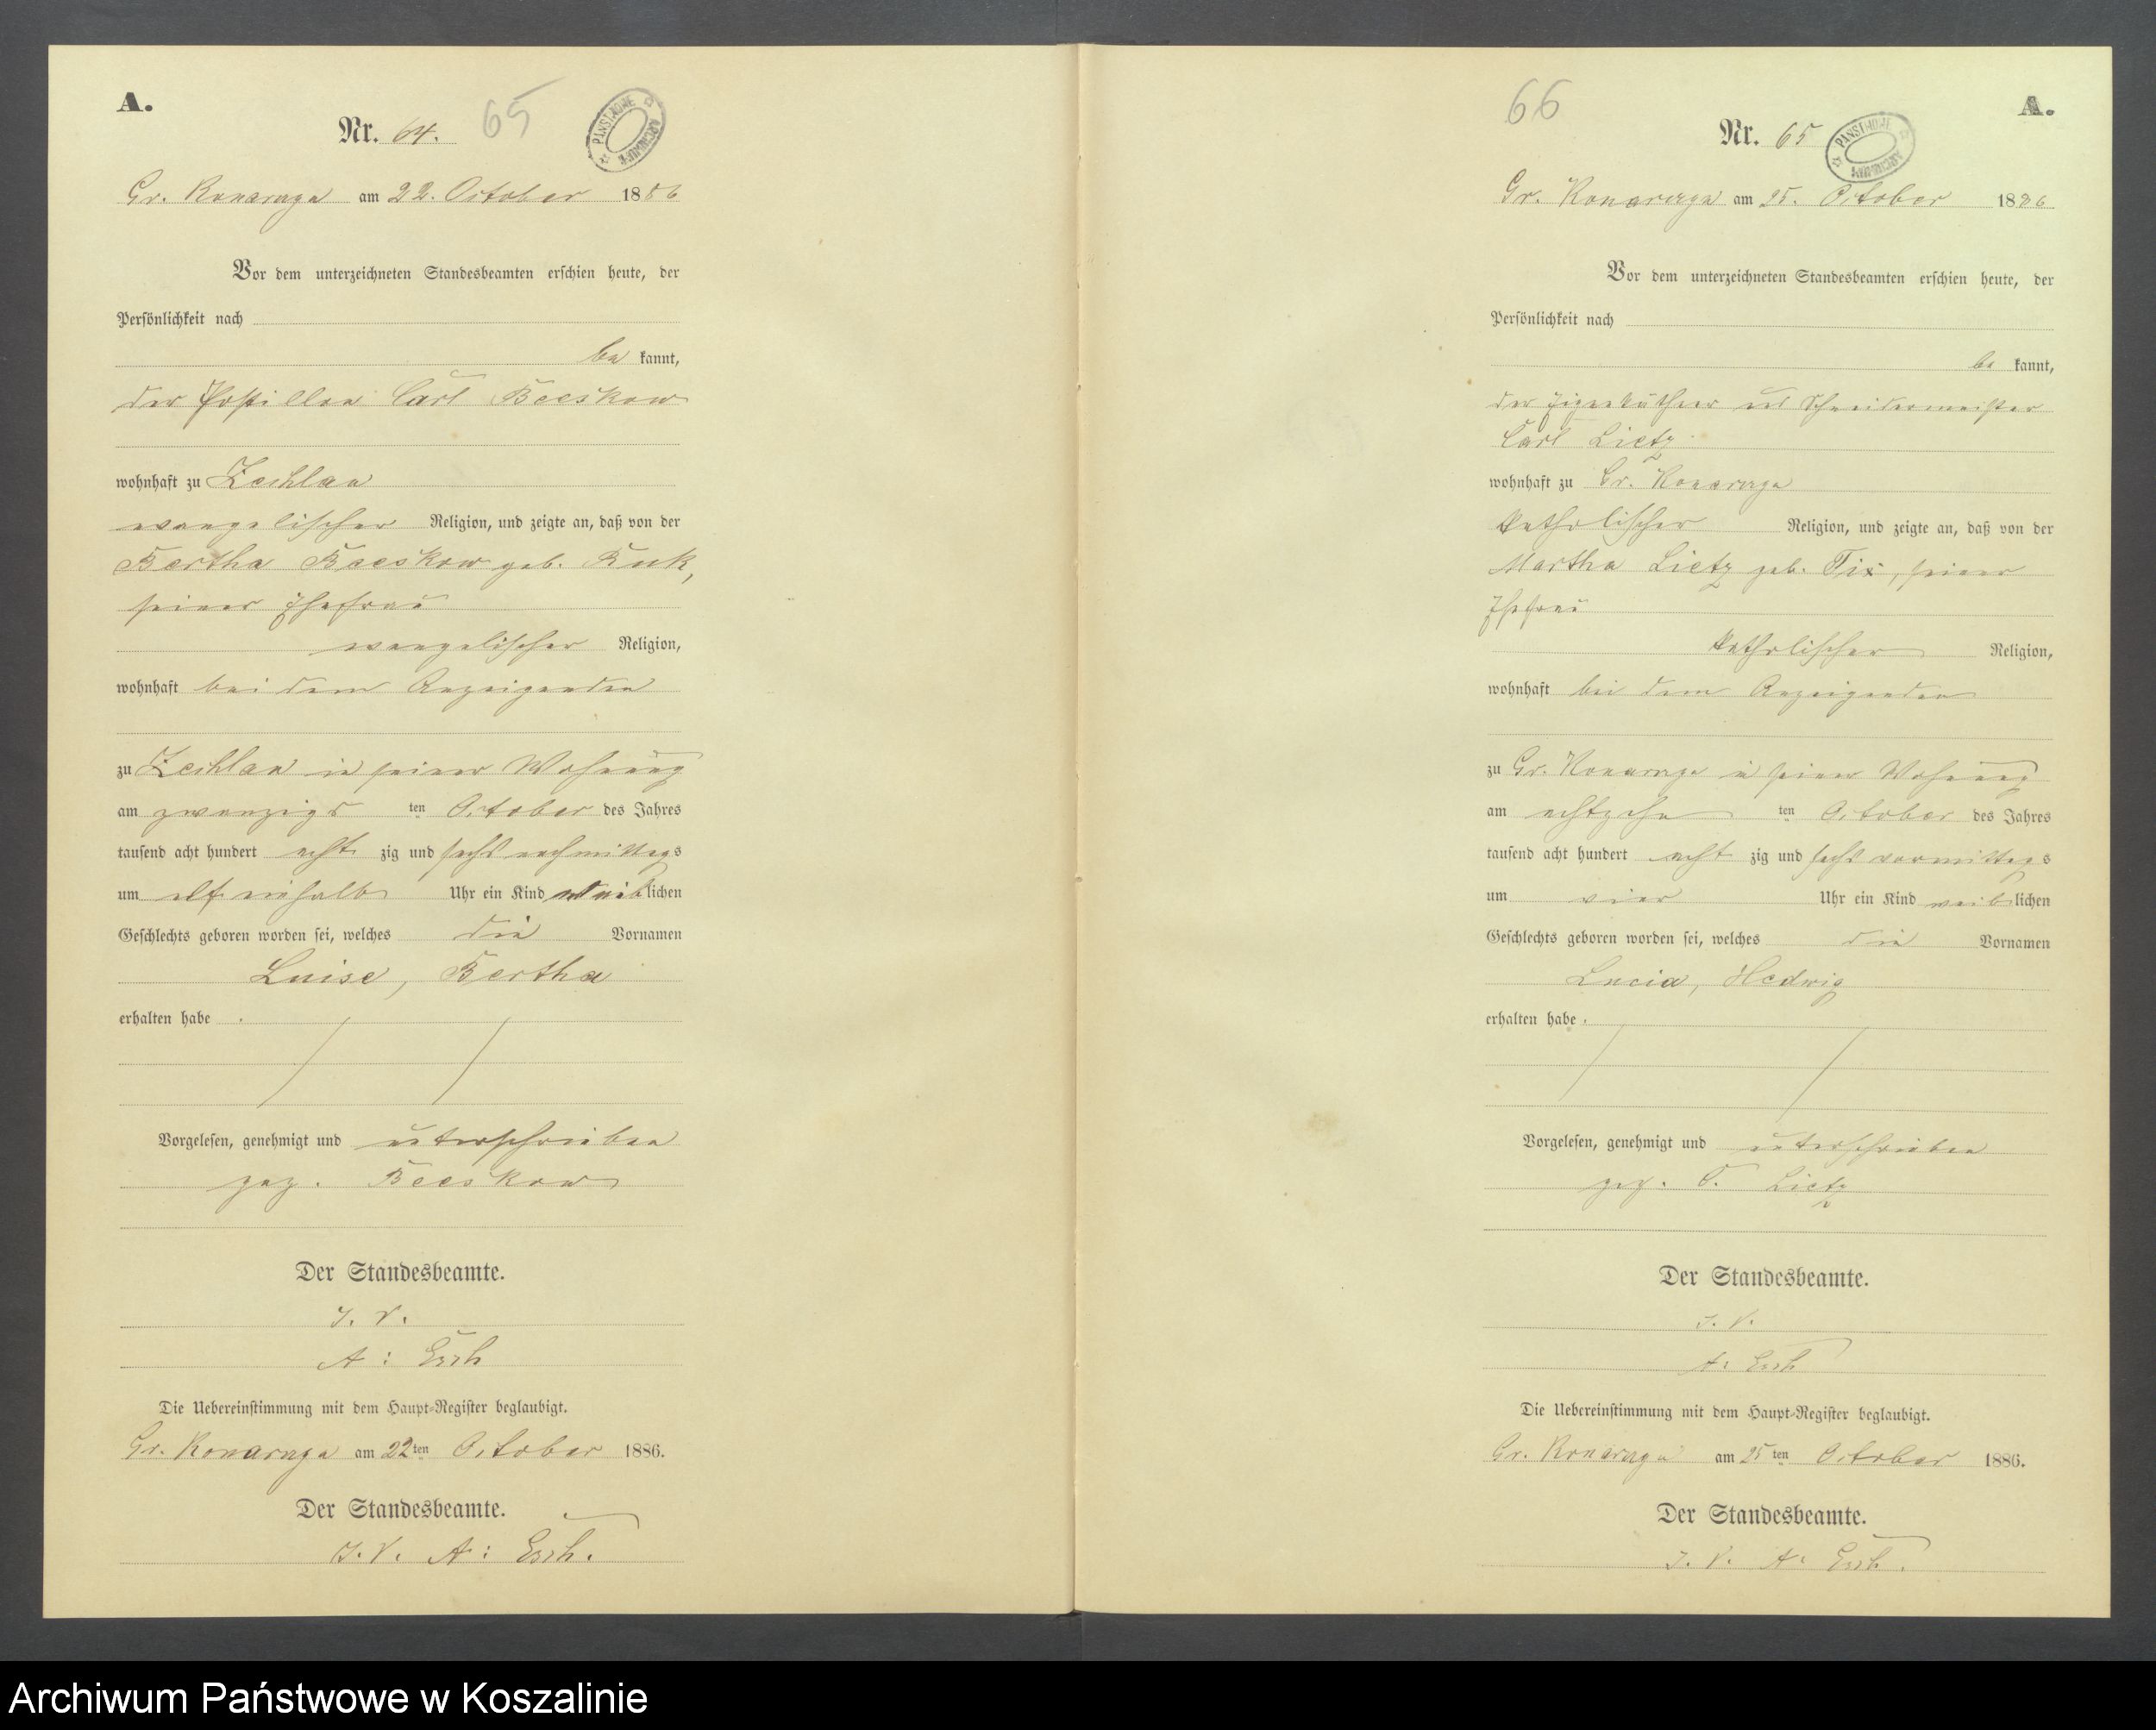 A.
Nr. 64.
65
PAŃSTWOWE ARCHIWUM
Gr. Konarzyn am 22. October 1886
Vor dem unterzeichneten Standesbeamten erschien heute, der
Persönlichkeit nach
be kannt,
der Postillon Carl Beeskow
wohnhaft zu Zechlau
evangelischer Religion, und zeigte an, daß von der
Bertha Beeskow geb. Kuk,
seiner Ehefrau
evangelischer Religion,
wohnhaft bei dem Anzeigenden
zu Zechlau in seiner Wohnung
am zwanzigs ten October des Jahres
tausend acht hundert acht zig und sechs nachmittags
um elf einhalb Uhr ein Kind weiblichen
Geschlechts geboren worden sei, welches die Vornamen
Luise, Bertha
erhalten habe.
Vorgelesen, genehmigt und unterschrieben
gez. Beeskow
Der Standesbeamte.
I. V.
A: Esch
Die Uebereinstimmung mit dem Haupt-Register beglaubigt.
Gr. Konarzyn am 22ten October 1886.
Der Standesbeamte.
I. V. A: Esch.
66
A.
Nr. 65
PAŃSTWOWE ARCHIWUM
Gr. Konarzyn am 25. October 1886
Vor dem unterzeichneten Standesbeamten erschien heute, der
Persönlichkeit nach
be kannt,
der Eigenkäthner und Schneidermeister
Carl Lietz
wohnhaft zu Gr. Konarzyn
katholischer Religion, und zeigte an, daß von der
Martha Lietz geb. Tix, seiner
Ehefrau
katholischer Religion,
wohnhaft bei dem Anzeigenden
zu Gr. Konarzyn in seiner Wohnung
am achtzehn ten October des Jahres
tausend acht hundert acht zig und sechs vormittags
um vier Uhr ein Kind weiblichen
Geschlechts geboren worden sei, welches die Vornamen
Lucia, Hedwig
erhalten habe.
Vorgelesen, genehmigt und unterschrieben
gez. C. Lietz
Der Standesbeamte.
I. V.
A: Esch
Die Uebereinstimmung mit dem Haupt-Register beglaubigt.
Gr. Konarzyn am 25 ten October 1886.
Der Standesbeamte.
I. V. A: Esch.
Archiwum Państwowe w Koszalinie